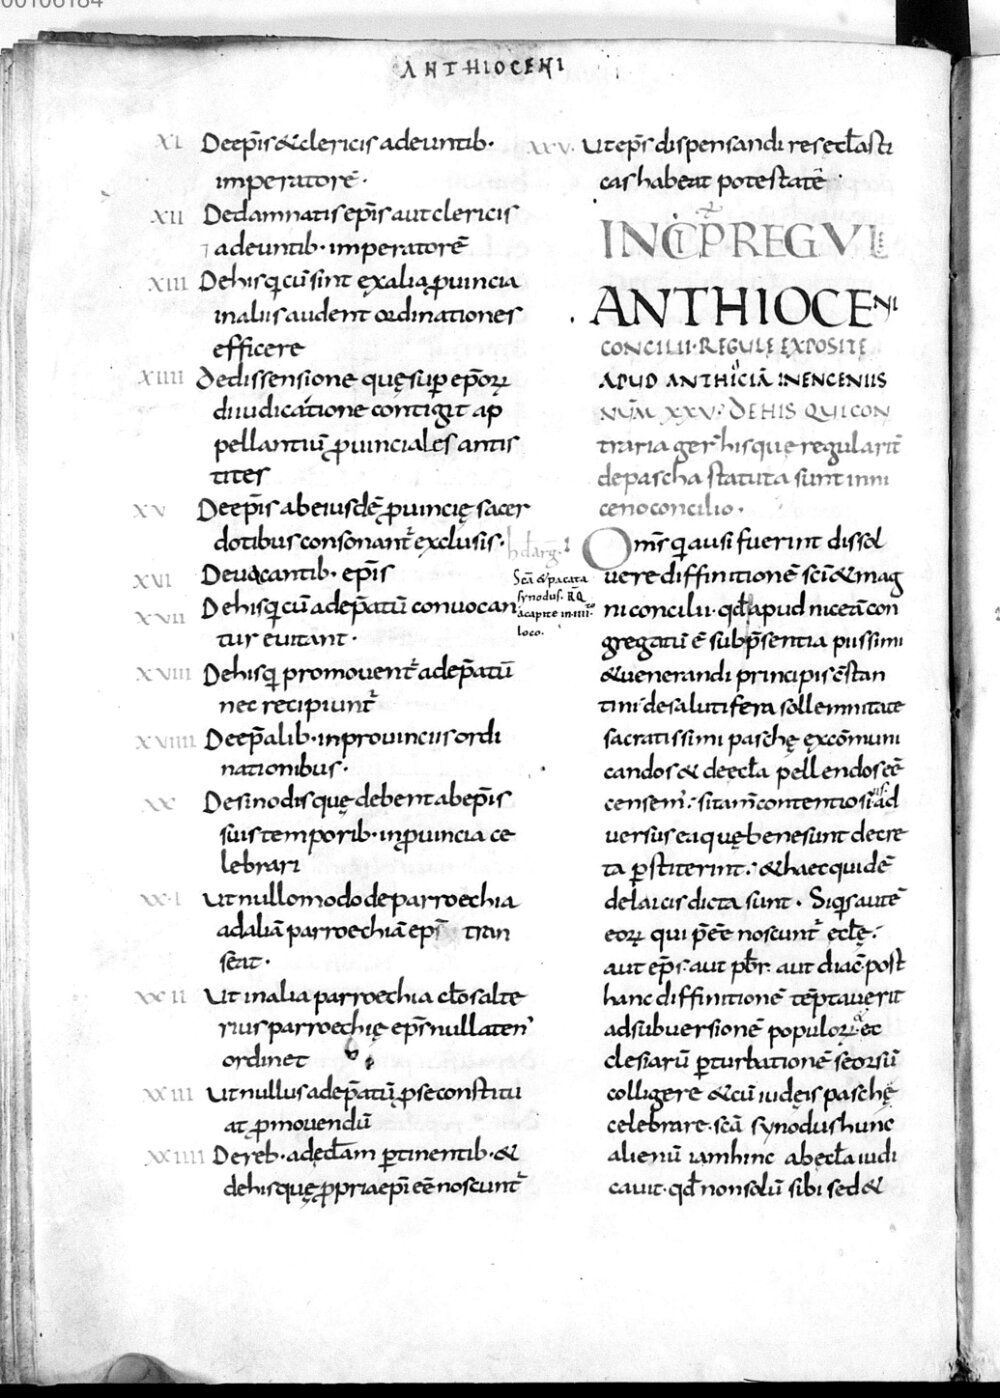 00106184
ANTHIOCENI
XI Deep̄is & clericis adeuntib·
imperatorē·
XII Dedamnatis ep̄is aut clericis
adeuntib· imperatorē
XIII Dehis q̣ cū sint ex alia ꝓuincia
in aliis audent ordinationes
efficere
XIIII De dissensione quę sup̱ ep̄oꝝ
diiudicatione contigit ap
pellantiū ꝓuinciales antis
tites
XV Deep̄is ab eiusdē ꝓuincię sacer
dotibus consonant᷑ exclusis·
XVI Deuacantib· ep̄is
XVII Dehis q̣ cū ad ep̄atū conuocan
tur euitant·
XVIII Dehis q̣ promouent᷑ ad ep̄atū
nec recipiunt᷑
XVIIII Deep̄alib· in prouinciis ordi
nationibus·
XX Desinodis quę debent ab ep̄is
suis temporib· in ꝓuincia ce
lebrari
XXI Ut nullomodo de parroechia
ad aliā parroechiā ep̄s tran
seat·
XXII Ut in alia parroechia cł̄o salte
rius parroechię ep̄s nullaten᾽
ordinet
XXIII Ut nullus ad ep̄atū ꝓ se constitu
at ꝓmouendū
XXIIII Dereb· ad ęcł̄am ꝑtinentib· &
dehis quę ꝓpria ep̄i eē noscunt᷑
Scā & pacata
synodus. RQ
a capite in IIII
loco.
XXV· Ut ep̄s dispensandi res ecł̄asti
cas habeat potestatē·
INCIP̄ REGUL
ANTHIOCENI
CONCILII· REGULĘ EXPOSITĘ
APUD ANTHIOCIĀ IN ENCENIIS
NUM̄ XXV· DE HIS QUI CON
traria ger̄ his que regularit᷑
de pascha statuta sunt in ni
ceno concilio·
Om̄s q̣ ausi fuerint dissol
uere diffinitionē sc̄i & mag
ni concilii· qđ apud niceā con
gregatū ē sub p̄sentia piissimi
& uenerandi principis cōstan
tini de salutifera sollemnitate
sacratissimi paschę excōmuni
candos & de ecł̄a pellendos eē
censem᾽· si tam̄ contentiosi᾽ ad
uersus ea quę bene sunt decre
ta ꝑstiterint· & haec quidē
de laicis dicta sunt· Siq̣s autē
eoꝝ qui p̄eē noscunt᷑ ecł̄ę·
aut ep̄s· aut pb̄r· aut diac̄· post
hanc diffinitionē tēptauerit
ad subuersionē populoꝝ & ec
clesiarū ꝑturbationē seorsū
colligere & cū iudęis paschę
celebrare· scā synodus hunc
alienū iam hinc ab ecł̄a iudi
cauit· qđ non solū sibi sed &